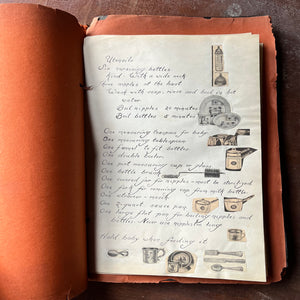 Utensils
Six nursing bottles
Kind: With a wide neck
nipples at the least.
Wash with soap, rinse and boil in hot
water.
Boil nipples 20 minutes
Boil bottles 5 minutes
One measuring teaspoon for baby
One measuring tablespoon
One funnel to fit bottles
One double boiler
One pint measuring cup or glass
One bottle brush
One covered jar for nipples - must be sterilized
One for removing cap from milk bottles
One
One 2 quart sauce pan
One large flat pan for boiling nipples and
bottles. Never use nipples too long
Hold baby when feeding it